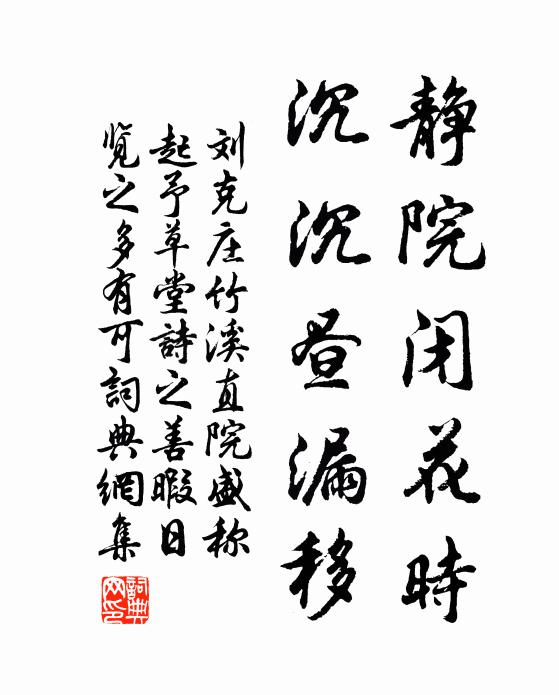 静院闭花時
沉沉昼漏移
刘克庄竹溪直院盛称
起予草堂詩之善暇日
览之多有可詞典網集
詞典网印